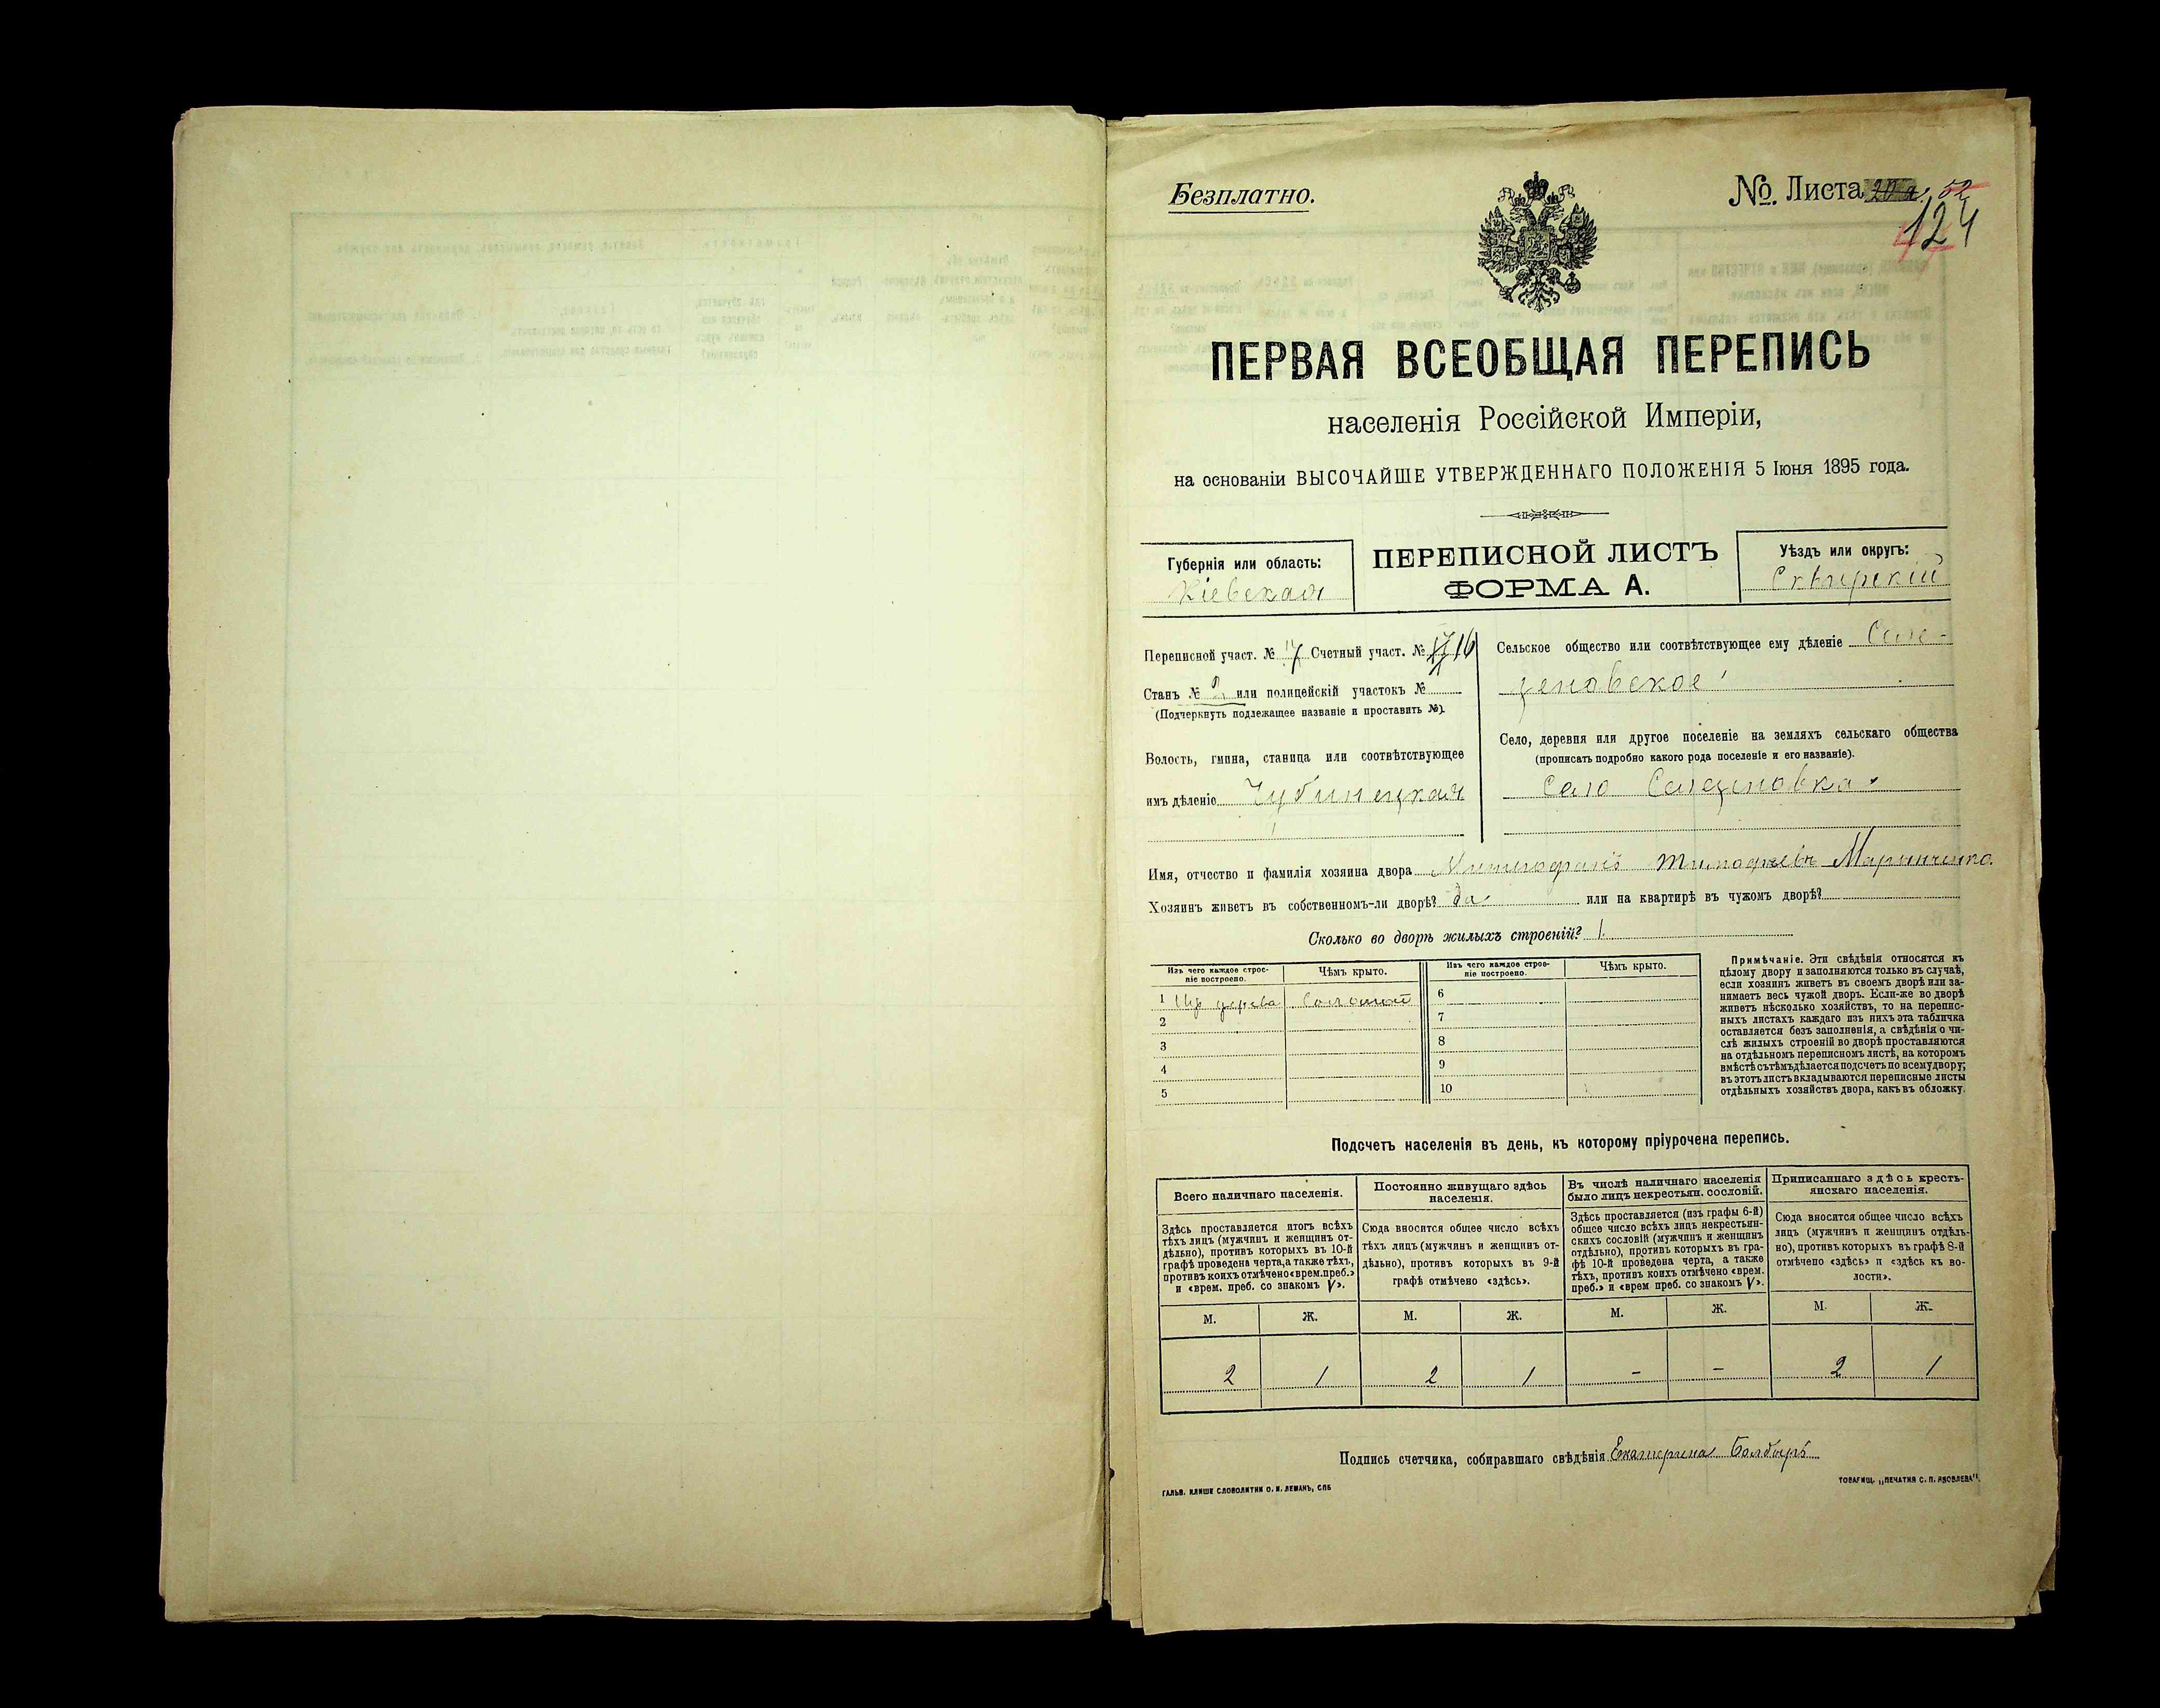 Безплатно.
№. Листа 52
124
ПЕРВАЯ ВСЕОБЩАЯ ПЕРЕПИСЬ
населенія Россійской Имперіи,
на основаніи ВЫСОЧАЙШЕ УТВЕРЖДЕННАГО ПОЛОЖЕНІЯ 5 Іюня 1895 года.
Губернія или область:
Кіевская
ПЕРЕПИСНОЙ ЛИСТЪ
ФОРМА А.
Уѣздъ или округъ:
Сквирскій
Переписной участ. № Счетный участ. № 16
Станъ № 2 или полицейскій участокъ №
(Подчеркнуть подлежащее названіе и проставить №).
Волость, гмина, станица или соотвѣтствующее
имъ дѣленіе Чубинецкая
Сельское общество или соотвѣтствующее ему дѣленіе Селе-
зеновское
Село, деревня или другое поселеніе на земляхъ сельскаго общества
(прописать подробно какого рода поселеніе и его названіе).
Село Селезеновка
Имя, отчество и фамилія хозяина двора Митрофанъ Тимофѣевъ Маринченко.
Хозяинъ живетъ въ собственномъ-ли дворѣ? да или на квартирѣ въ чужомъ дворѣ?
Сколько во дворѣ жилыхъ строеній? 1.
Изъ чего каждое строе-
ніе построено.
Чѣмъ крыто.
Изъ чего каждое строе-
ніе построено.
Чѣмъ крыто.
1 Изъ дерева Соломой 6
2 7
3 8
4 9
5 10
Примѣчаніе. Эти свѣдѣнія относятся къ
цѣлому двору и заполняются только въ случаѣ,
если хозяинъ живетъ въ своемъ дворѣ или за-
нимаетъ весь чужой дворъ. Если-же во дворѣ
живетъ нѣсколько хозяйствъ, то на перепис-
ныхъ листахъ каждаго изъ нихъ эта табличка
оставляется безъ заполненія, а свѣдѣнія о чи-
слѣ жилыхъ строеній во дворѣ проставляются
на отдѣльномъ переписномъ листѣ, на которомъ
вмѣстѣ съ тѣмъ дѣлается подсчетъ по всему двору;
въ этотъ листъ вкладываются переписные листы
отдѣльныхъ хозяйствъ двора, какъ въ обложку.
Подсчетъ населенія въ день, къ которому пріурочена перепись.
Всего наличнаго населенія.
Здѣсь проставляется итогъ всѣхъ
тѣхъ лицъ (мужчинъ и женщинъ от-
дѣльно), противъ которыхъ въ 10-й
графѣ проведена черта, а также тѣхъ,
противъ коихъ отмѣчено «врем. преб.»
и «врем. преб. со знакомъ V».
Постоянно живущаго здѣсь
населенія.
Сюда вносится общее число всѣхъ
тѣхъ лицъ (мужчинъ и женщинъ от-
дѣльно), противъ которыхъ въ 9-й
графѣ отмѣчено «здѣсь».
Въ числѣ наличнаго населенія
было лицъ некрестьян. сословій.
Здѣсь проставляется (изъ графы 6-й)
общее число всѣхъ лицъ некрестьян-
скихъ сословій (мужчинъ и женщинъ
отдѣльно), противъ которыхъ въ гра-
фѣ 10-й проведена черта, а также
тѣхъ, противъ коихъ отмѣчено «врем.
преб.» и «врем преб. со знакомъ V».
Приписаннаго здѣсь кресть-
янскаго населенія.
Сюда вносится общее число всѣхъ
лицъ (мужчинъ и женщинъ отдѣль-
но), противъ которыхъ въ графѣ 8-й
отмѣчено «здѣсь» и «здѣсь къ во-
лости».
М. Ж. М. Ж. М. Ж. М. Ж.
2 1 2 1 - - 2 1
Подпись счетчика, собиравшаго свѣдѣнія Екатерина Болбыръ
ГАЛЬВ. КЛИШЕ СЛОВОЛИТНИ О. И. ЛЕМАНЪ, СПБ
ТОВАРИЩ. „ПЕЧАТНЯ С. П. ЯКОВЛЕВА".